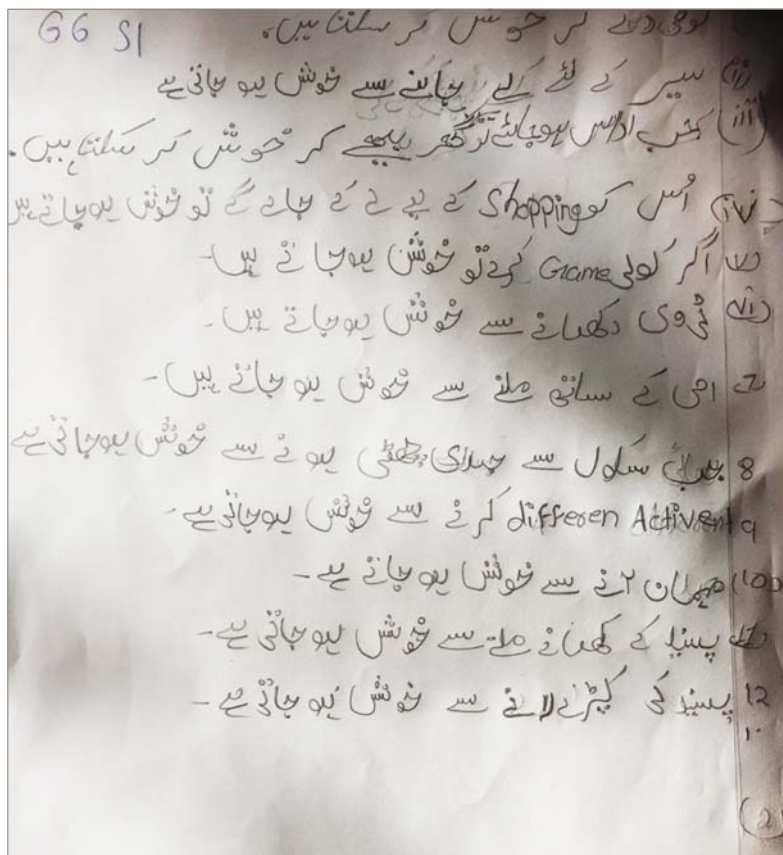 G6 S1
کر خوش کر سکتا ہیں.
(ii) سیر کے لئے لے جانے سے خوش ہو جاتی ہے
(iii) جب اداس ہو جائے تو گھر بھیج کر خوش کر سکتا ہیں.
(iv) اس کو Shopping کے لے کے جائے گے تو خوش ہو جاتے ہیں
(v) اگر کوئی Game کرے تو خوش ہو جاتے ہیں-
(vi) ٹی وی دکھانے سے خوش ہو جاتے ہیں-
7 امی کے ساتھی ملنے سے خوش ہو جاتے ہیں-
8 جب سکول سے جلدی چھٹی ہونے سے خوش ہو جاتی ہے
9 differen Activent کرنے سے خوش ہو جاتی ہے-
(10 مہمان آنے سے خوش ہو جاتے ہے-
11 پسند کے کھانے ملنے سے خوش ہو جاتی ہے-
12 پسند کی کپڑے لانے سے خوش ہو جاتی ہے-
(2)